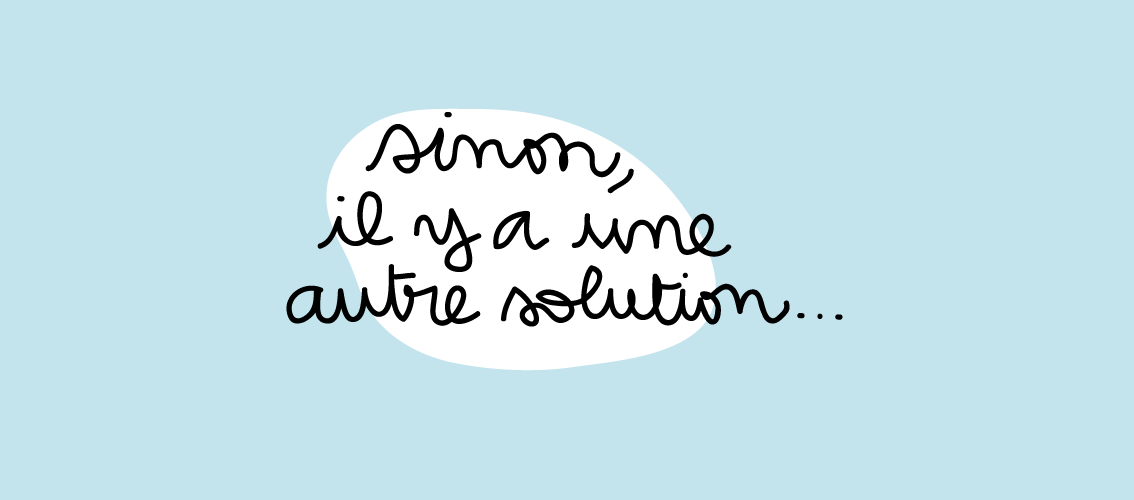 sinon,
il y a une
autre solution...